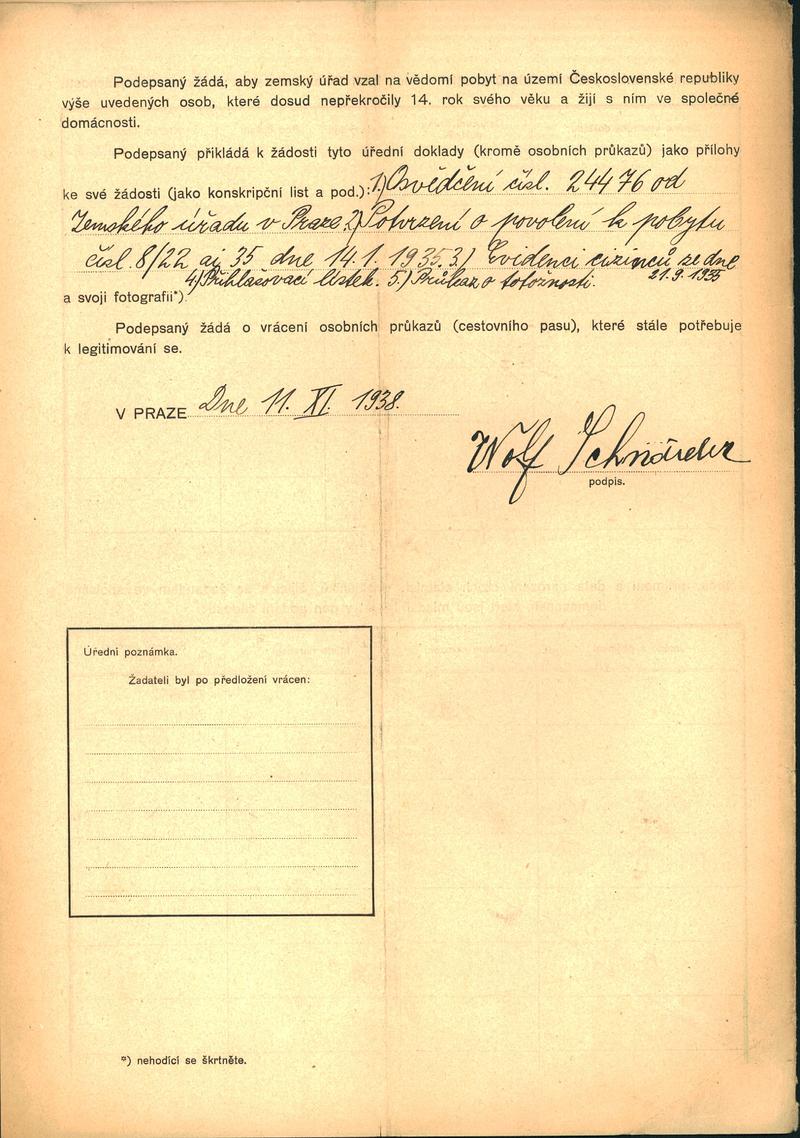 Podepsaný žádá, aby zemský úřad vzal na vědomí pobyt na území Československé republiky
výše uvedených osob, které dosud nepřekročily 14. rok svého věku a žijí s ním ve společné
domácnosti.
Podepsaný přikládá k žádosti tyto úřední doklady (kromě osobních průkazů) jako přílohy
ke své žádosti (jako konskripční list a pod.): 1.) Osvědčení čísl. 24476 od
Zemského úřadu v Praze 2.) Potvrzení o povolení k pobytu
čísl. 8/22 ai 35 dne 14. 1. 1935. 3.) Evidenci cizinců ze dne
4.) Přihlašovací lístek. 5.) Průkaz o totožnosti. 21. 9. 1935
a svoji fotografii*).
Podepsaný žádá o vrácení osobních průkazů (cestovního pasu), které stále potřebuje
k legitimování se.
V PRAZE Dne 11. XI. 1938.
Wolf Schnürder
podpis.
Úřední poznámka.
Žadateli byl po předložení vrácen:
*) nehodící se škrtněte.